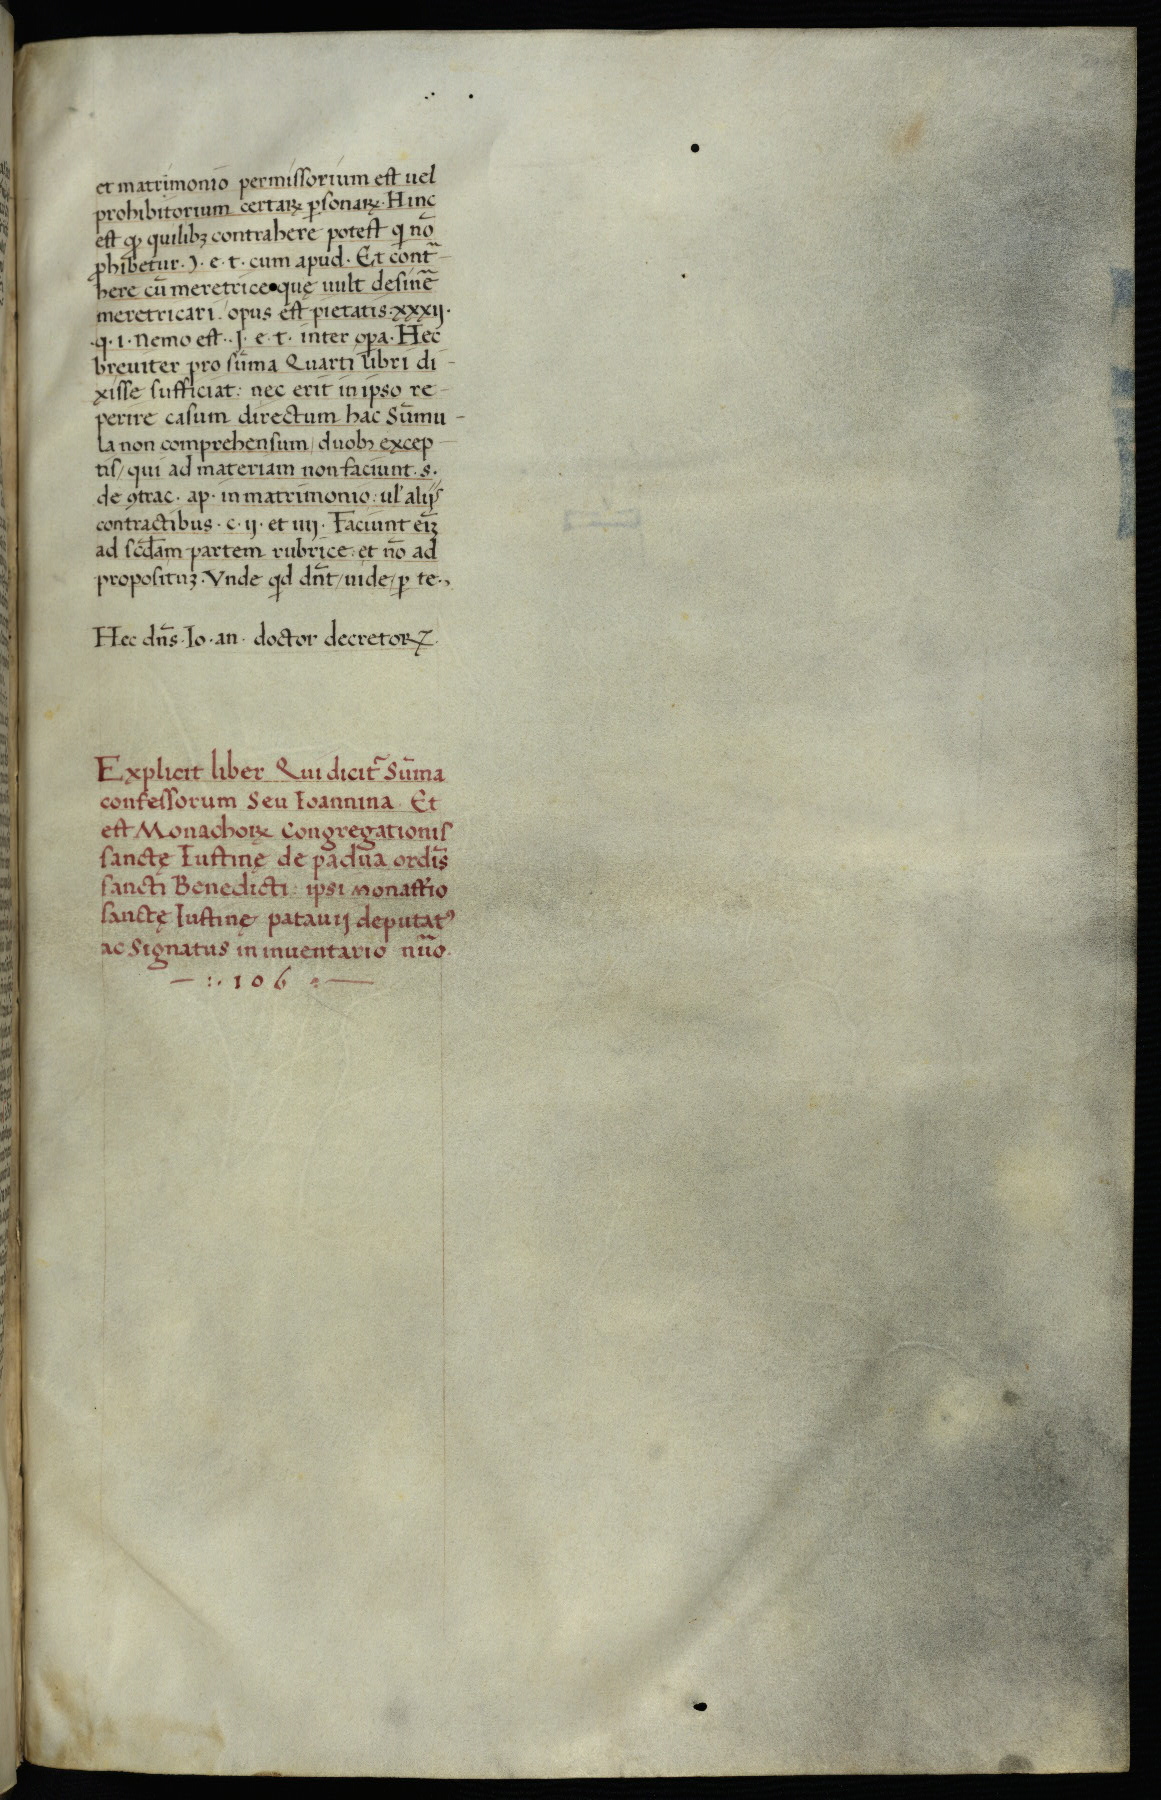 et matrimonio permissorium est uel
prohibitorium certaꝝ ꝑsonaꝝ. Hinc
est ꝙ quilibꝫ contrahere potest qi nō
ꝓhibetur. J. e. t. cum apud. Et cont̄
here cū meretrice quę uult desinē
meretricari / opus est pietatis. xxxij.
.q. i. Nemo est.. J. e. t. inter oꝑa. Hec
breuiter pro sūma Quarti libri di
xisse sufficiat: nec erit in ipso re
perire casum directum hac Sūmu
la non comprehensum / duobꝫ excep
tis / qui ad materiam non faciunt. s.
de ꝯtrac. ap. in matrimonio: ul' alijs
contractibus. c. ij. et iiij. Faciunt eīꝫ
ad scd̄am partem rubrice: et nō ad
proposituꝫ. Vnde qd dn̄t / uide / ꝑ te.
Hec dn̄s. Io. an. doctor decretoꝝ.
Explicit liber Qui dicit̄ Sūma
confessorum Seu Ioannina. Et
est Monachoꝝ Congregationis
sanctę Iustinę de padua ordīs
sancti Benedicti: ipsi monast'io
sanctę Iustinę patauij deputatꝰ
ac Signatus in inuentario nūo.
— :. 106 :—